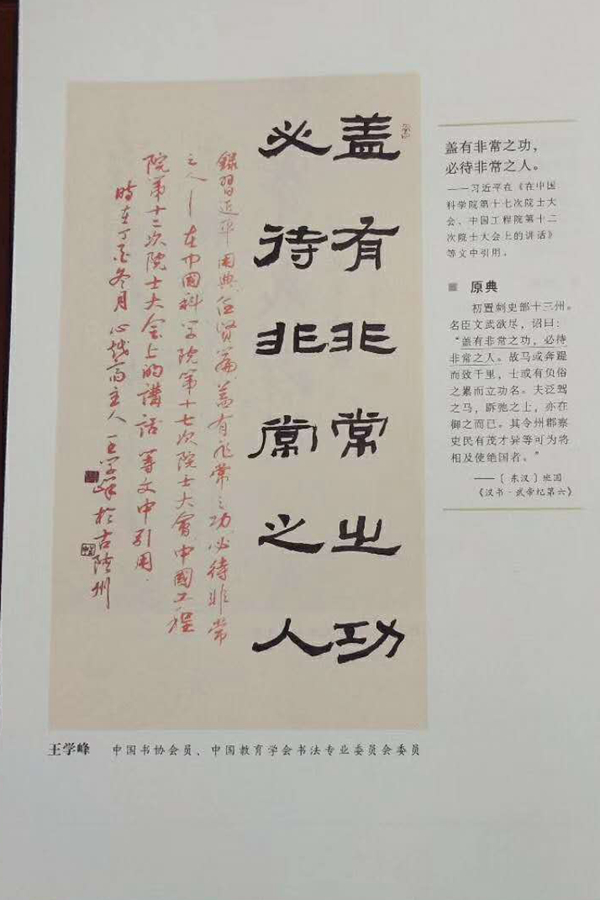 盖有非常之功
必待非常之人
録習近平用典任贤篇盖有非常之功必待非常
之人——在中国科学院第十七次院士大會中國工程
院第十二次院士大会上的講話等文中引用
時在丁酉冬月心越斋主人王学峰於古陸州
盖有非常之功，
必待非常之人。
——习近平在《在中国
科学院第十七次院士大
会、中国工程院第十二
次院士大会上的讲话》
等文中引用。
■ 原典
初置刺史部十三州。
名臣文武欲尽，诏曰：
“盖有非常之功，必待
非常之人。故马或奔踶
而致千里，士或有负俗
之累而立功名。夫泛驾
之马，跅弛之士，亦在
御之而已。其令州郡察
吏民有茂才异等可为将
相及使绝国者。”
——〔东汉〕班固
《汉书·武帝纪第六》
王学峰 中国书协会员、中国教育学会书法专业委员会委员